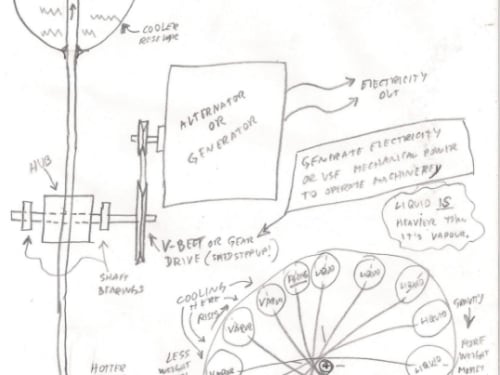 COOLER
ALTERNATOR
OR
GENERATOR
ELECTRICITY
OUT
GENERATE ELECTRICITY
OR USE MECHANICAL POWER
TO OPERATE MACHINERY
LIQUID IS
HEAVIER THAN
IT'S VAPOUR.
HUB
V-BELT OR GEAR
DRIVE (SPEED STEP UP!)
SHAFT
BEARINGS
COOLING
HERE
RISES
VAPOUR
LIQUID
LIQUID
LIQUID
VAPOUR
LIQUID
GRAVITY
LESS
WEIGHT
VAPOUR
LIQUID
MORE
WEIGHT
HOTTER